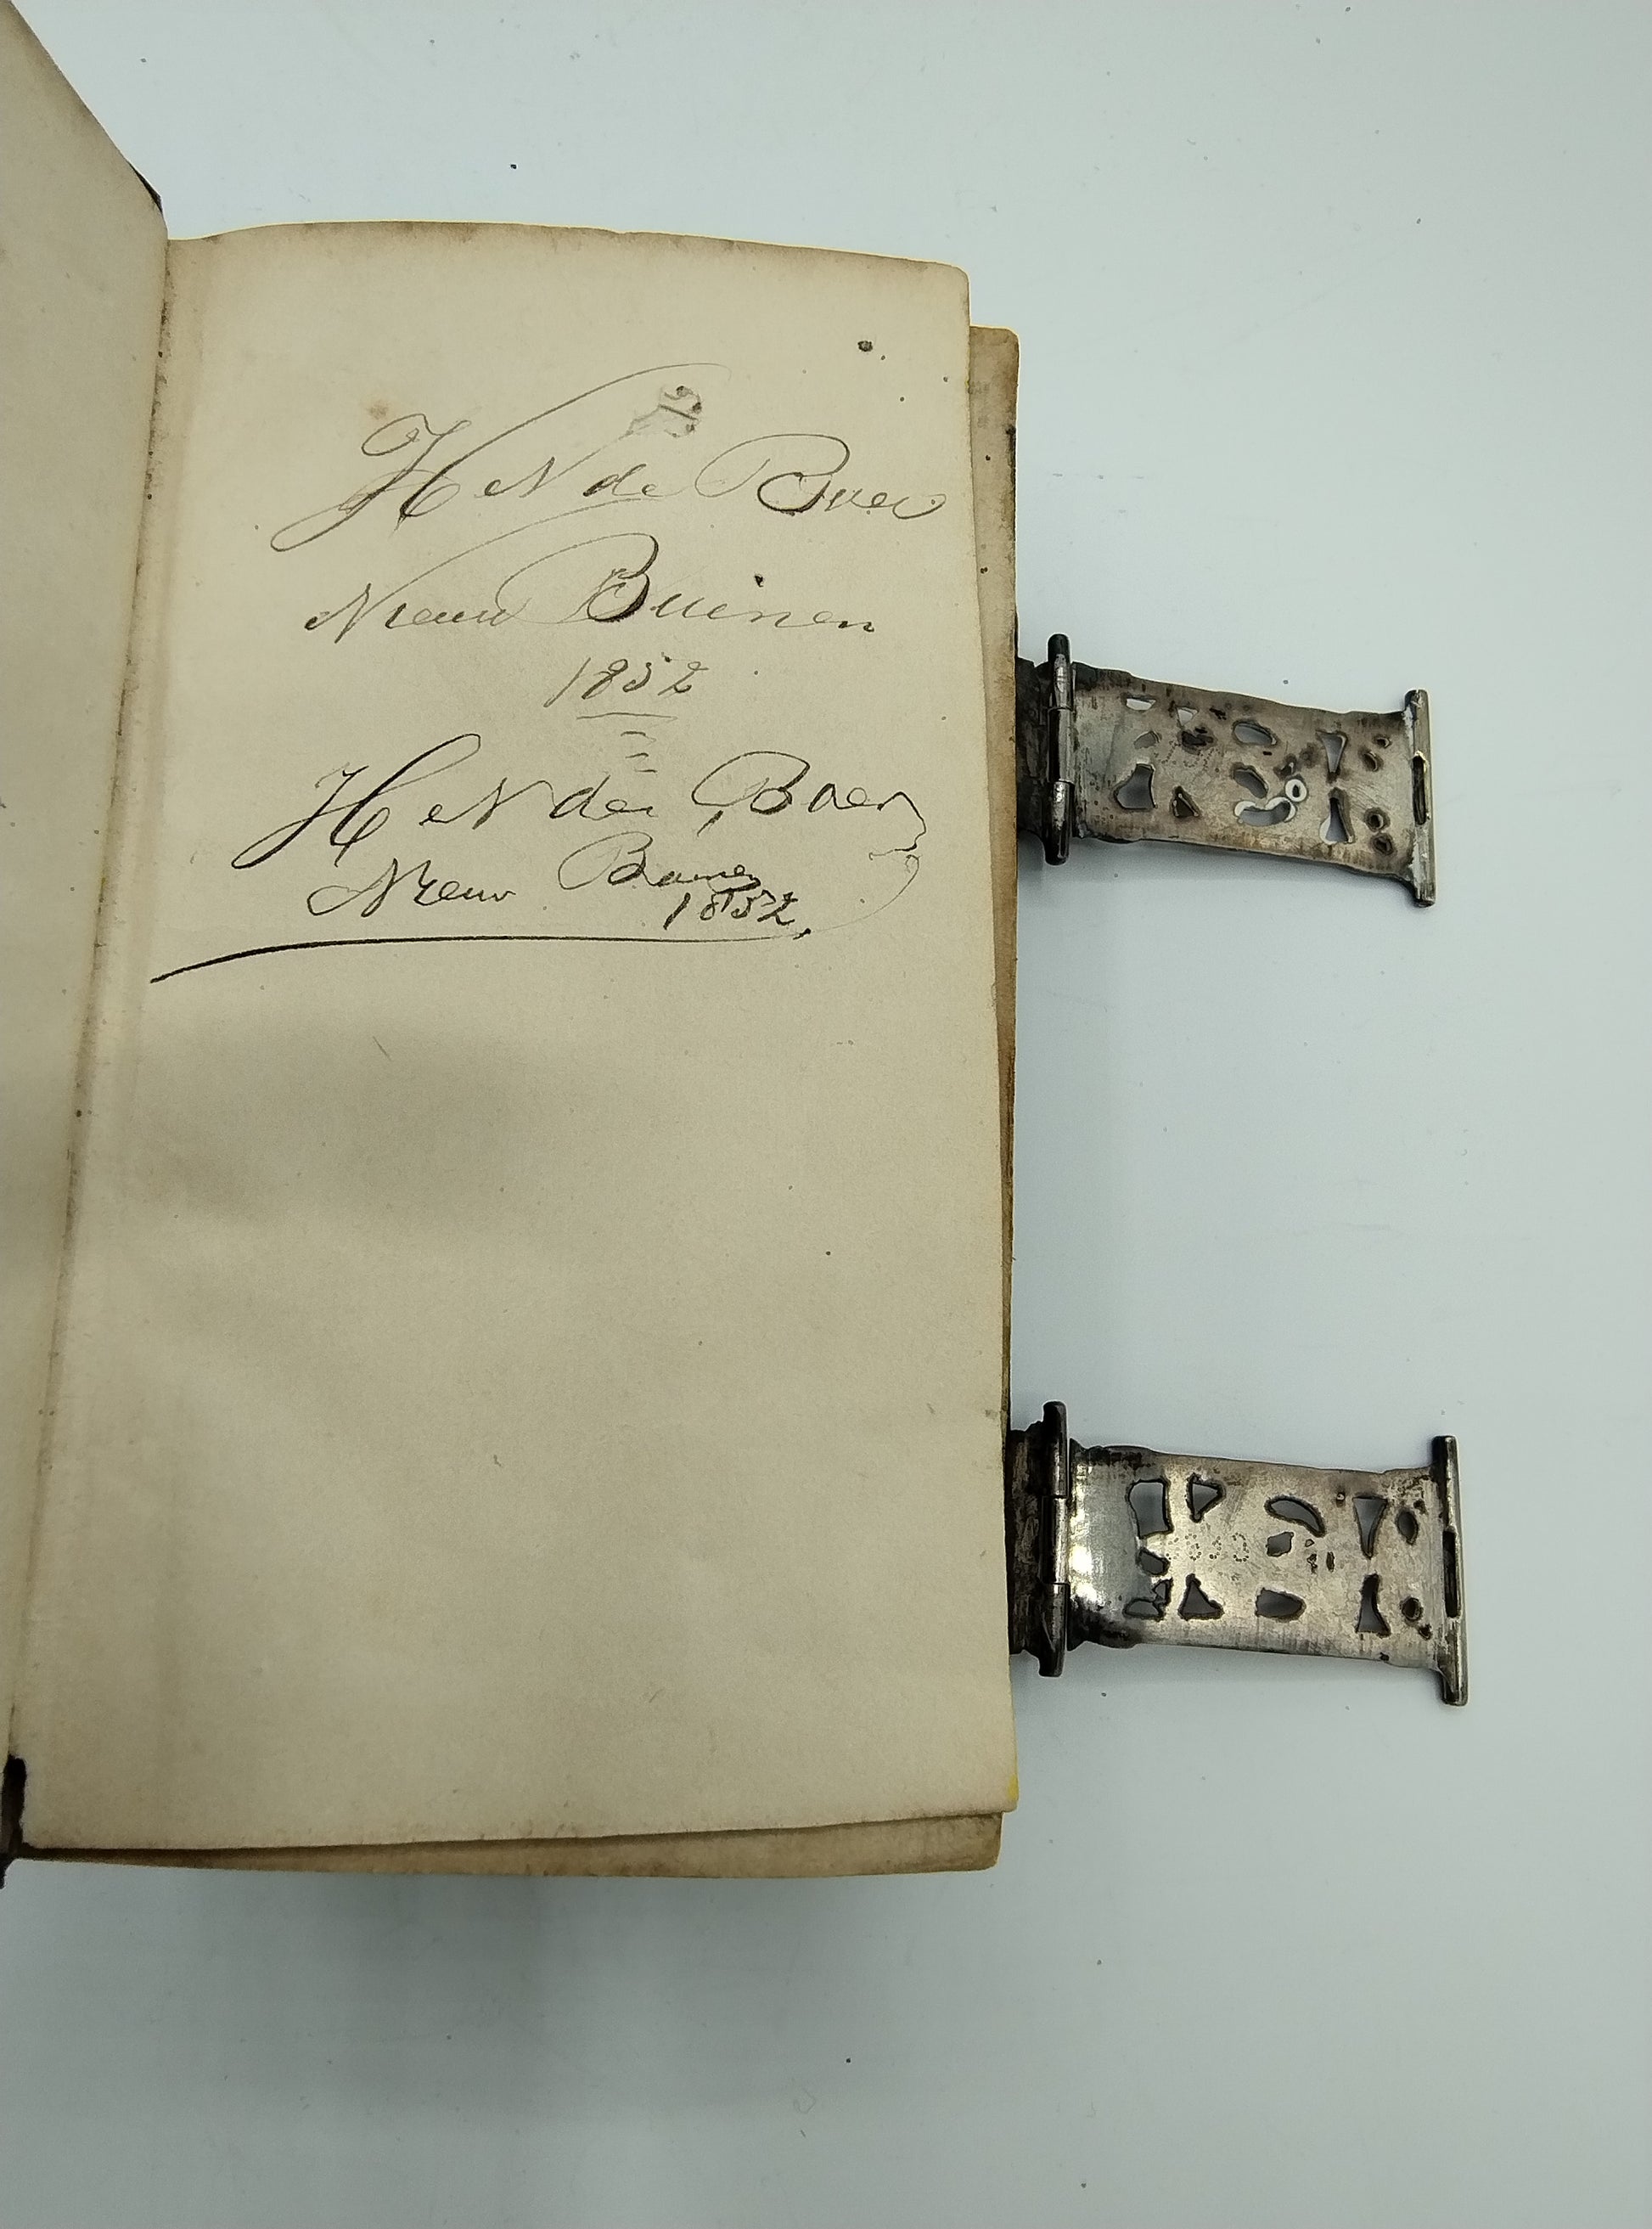 H N de Boer
Nieuw Buinen
1852
H N de Boer
Nieuw Buinen
1852.